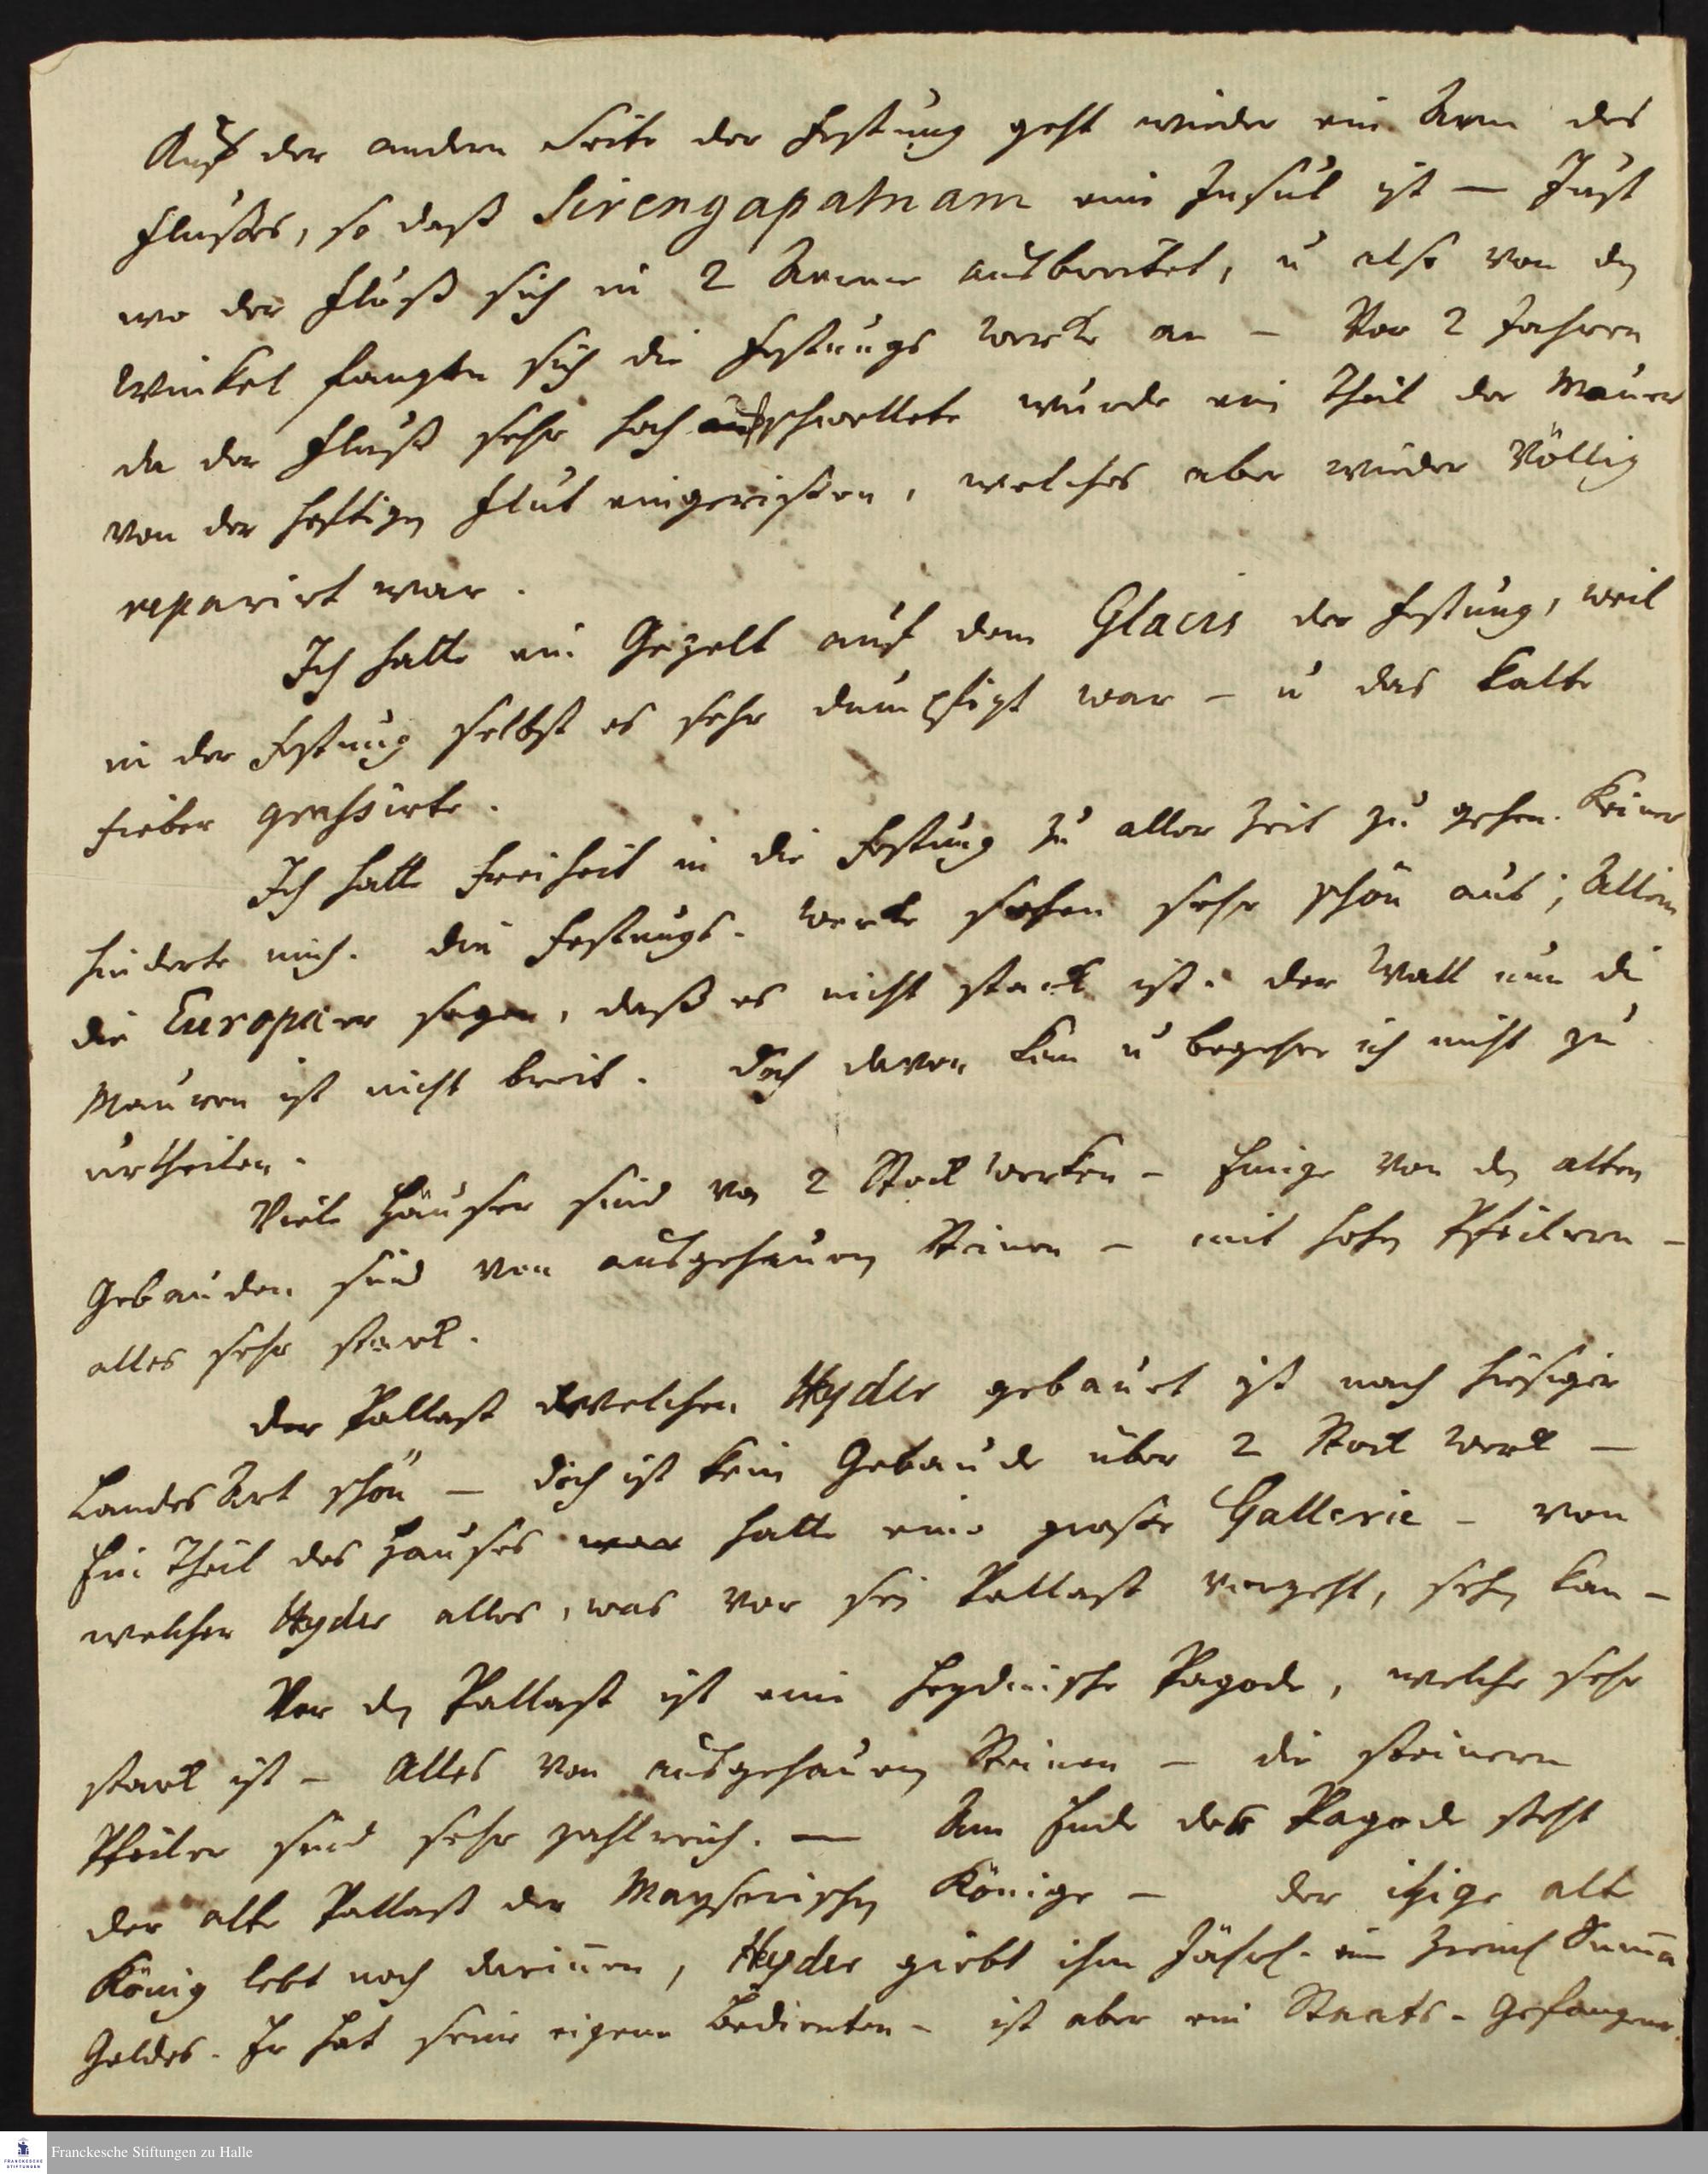 Auf der andern Seite der Festung geht wieder ein Arm des
Flußes, so daß Sirengapatnam eine Insul ist — Just
wo der Fluß sich in 2 Arme ausbreitet, u also von dem
Winkel fangen sich die Festungs Werke an – Vor 2 Jahren
da der Fluß sehr hoch aufschwellete wurde ein Theil der Mauer
von der heftigen Flut eingerißen, welches aber wieder völlig
reparirt war.
Ich hatte ein Gezelt auf dem Glacis der Festung, weil
in der Festung selbst es sehr dumpfigt war – u das kalte
Fieber grassirte.
Ich hatte Freiheit in die Festung zu aller Zeit zu gehen. Keiner
hinderte mich. Die Festungs-Werke sehen sehr schön aus; Allein
die Europäer sagen, daß es nicht stark ist. der Wall um die
Mauren ist nicht breit. Doch davon kan u begehre ich nicht zu
urtheilen.
Viele Häuser sind von 2 Stockwerken – Einige von den alten
Gebauden sind von ausgehauenen Steinen – mit hohen Pfeilern –
alles sehr stark.
Der Pallast welchen Hyder gebauet ist nach hiesiger
Landes Art schön – doch ist kein Gebaude über 2 Stock Werk –
Ein Theil des Hauses hatte eine große Gallerie – von
welcher Hyder alles, was vor sein Pallast vorgeht, sehen kan –
Vor dem Pallast ist eine heydnische Pagode, welche sehr
stark ist – Alles von ausgehauenen Steinen – die steinern
Pfeiler sind sehr zahlreich. — Am Ende der Pagode steht
der alte Pallast der Maysurischen Könige – der itzige alte
König lebt noch darinnen, Hyder giebt ihm jährl. eine ziemL Summa
Geldes. Er hat seine eigene Bedienten – ist aber ein Staats-Gefangener.
Franckesche Stiftungen zu Halle
FRANCKESCHE
STIFTUNGEN